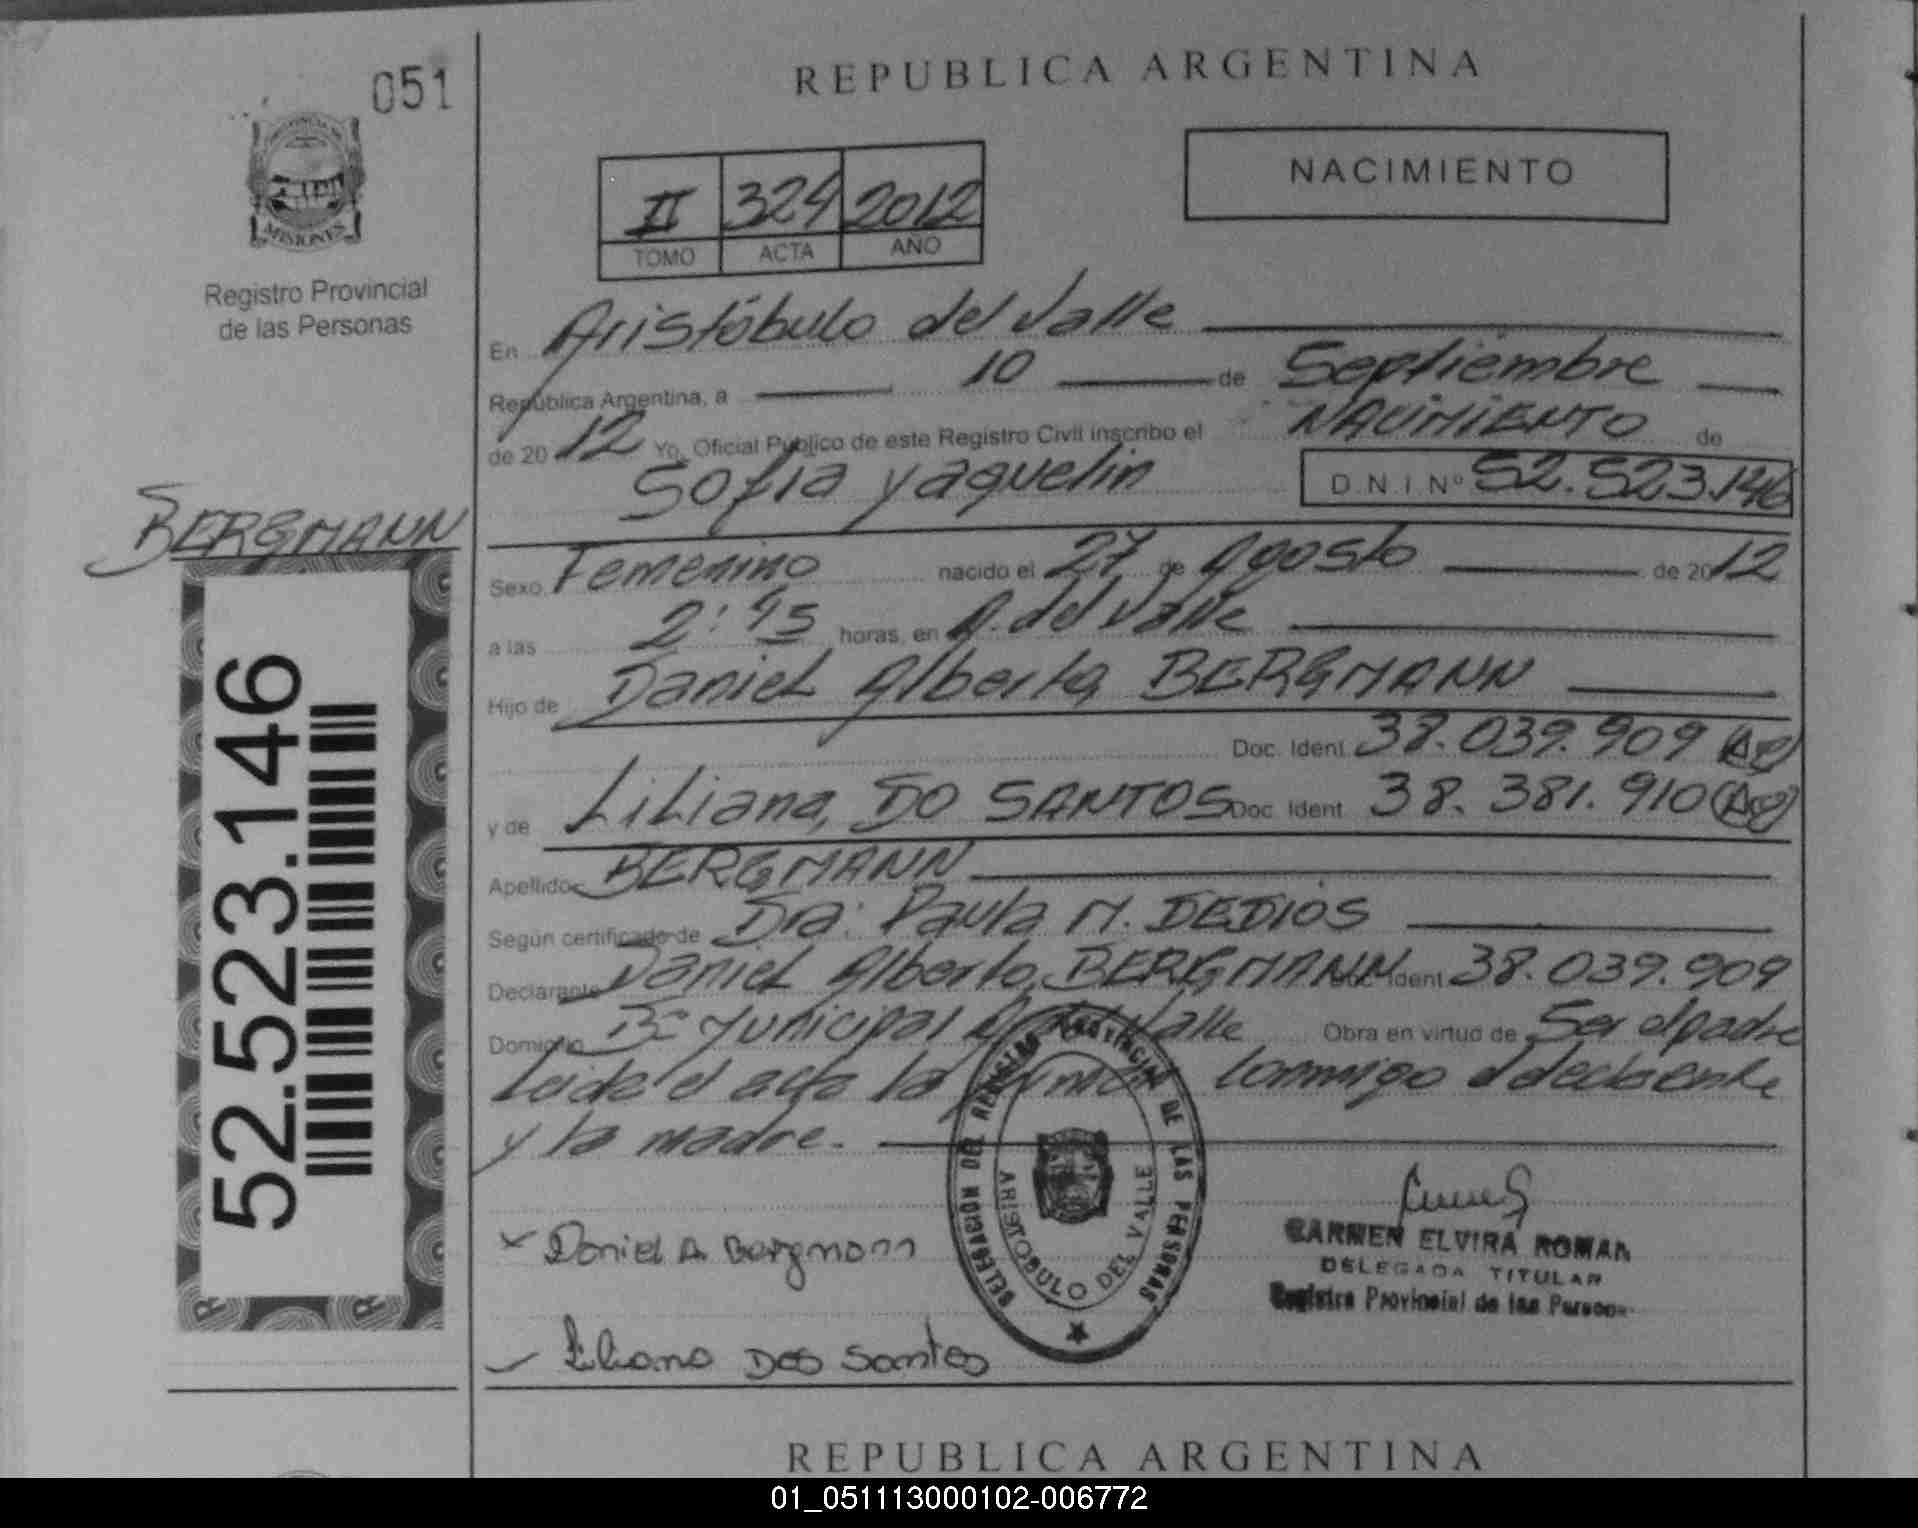 051
REPUBLICA ARGENTINA
NACIMIENTO
II 324 2012
TOMO ACTA AÑO
MISIONES
Registro Provincial
de las Personas
En Aristóbulo del Valle
República Argentina, a 10 de Septiembre
de 2012 Yo, Oficial Público de este Registro Civil inscribo el NACIMIENTO de
Sofia Yaquelin D.N.I.Nº 52.523.146
BERGMANN
52.523.146
Sexo Femenino nacido el 27 de Agosto de 2012
a las 2:45 horas, en A. del Valle
Hijo de Daniel Alberto, BERGMANN
Doc. Ident. 38.039.909
y de Liliana, DO SANTOS Doc. Ident. 38.381.910
Apellido BERGMANN
Según certificado de Dra: Paula M. DEDIOS
Declarante Daniel Alberto, BERGMANN Doc. Ident. 38.039.909
Domicilio Bº Municipal A. del Valle Obra en virtud de Ser el padre
Leida el acta la firman conmigo el declarante
y la madre.
DELEGACION DEL REGISTRO PROVINCIAL DE LAS PERSONAS
ARISTOBULO DEL VALLE
Daniel A. Bergmann
Liliana Dos Santos
CARMEN ELVIRA ROMAN
DELEGADA TITULAR
Registro Provincial de las Personas
REPUBLICA ARGENTINA
01_051113000102-006772